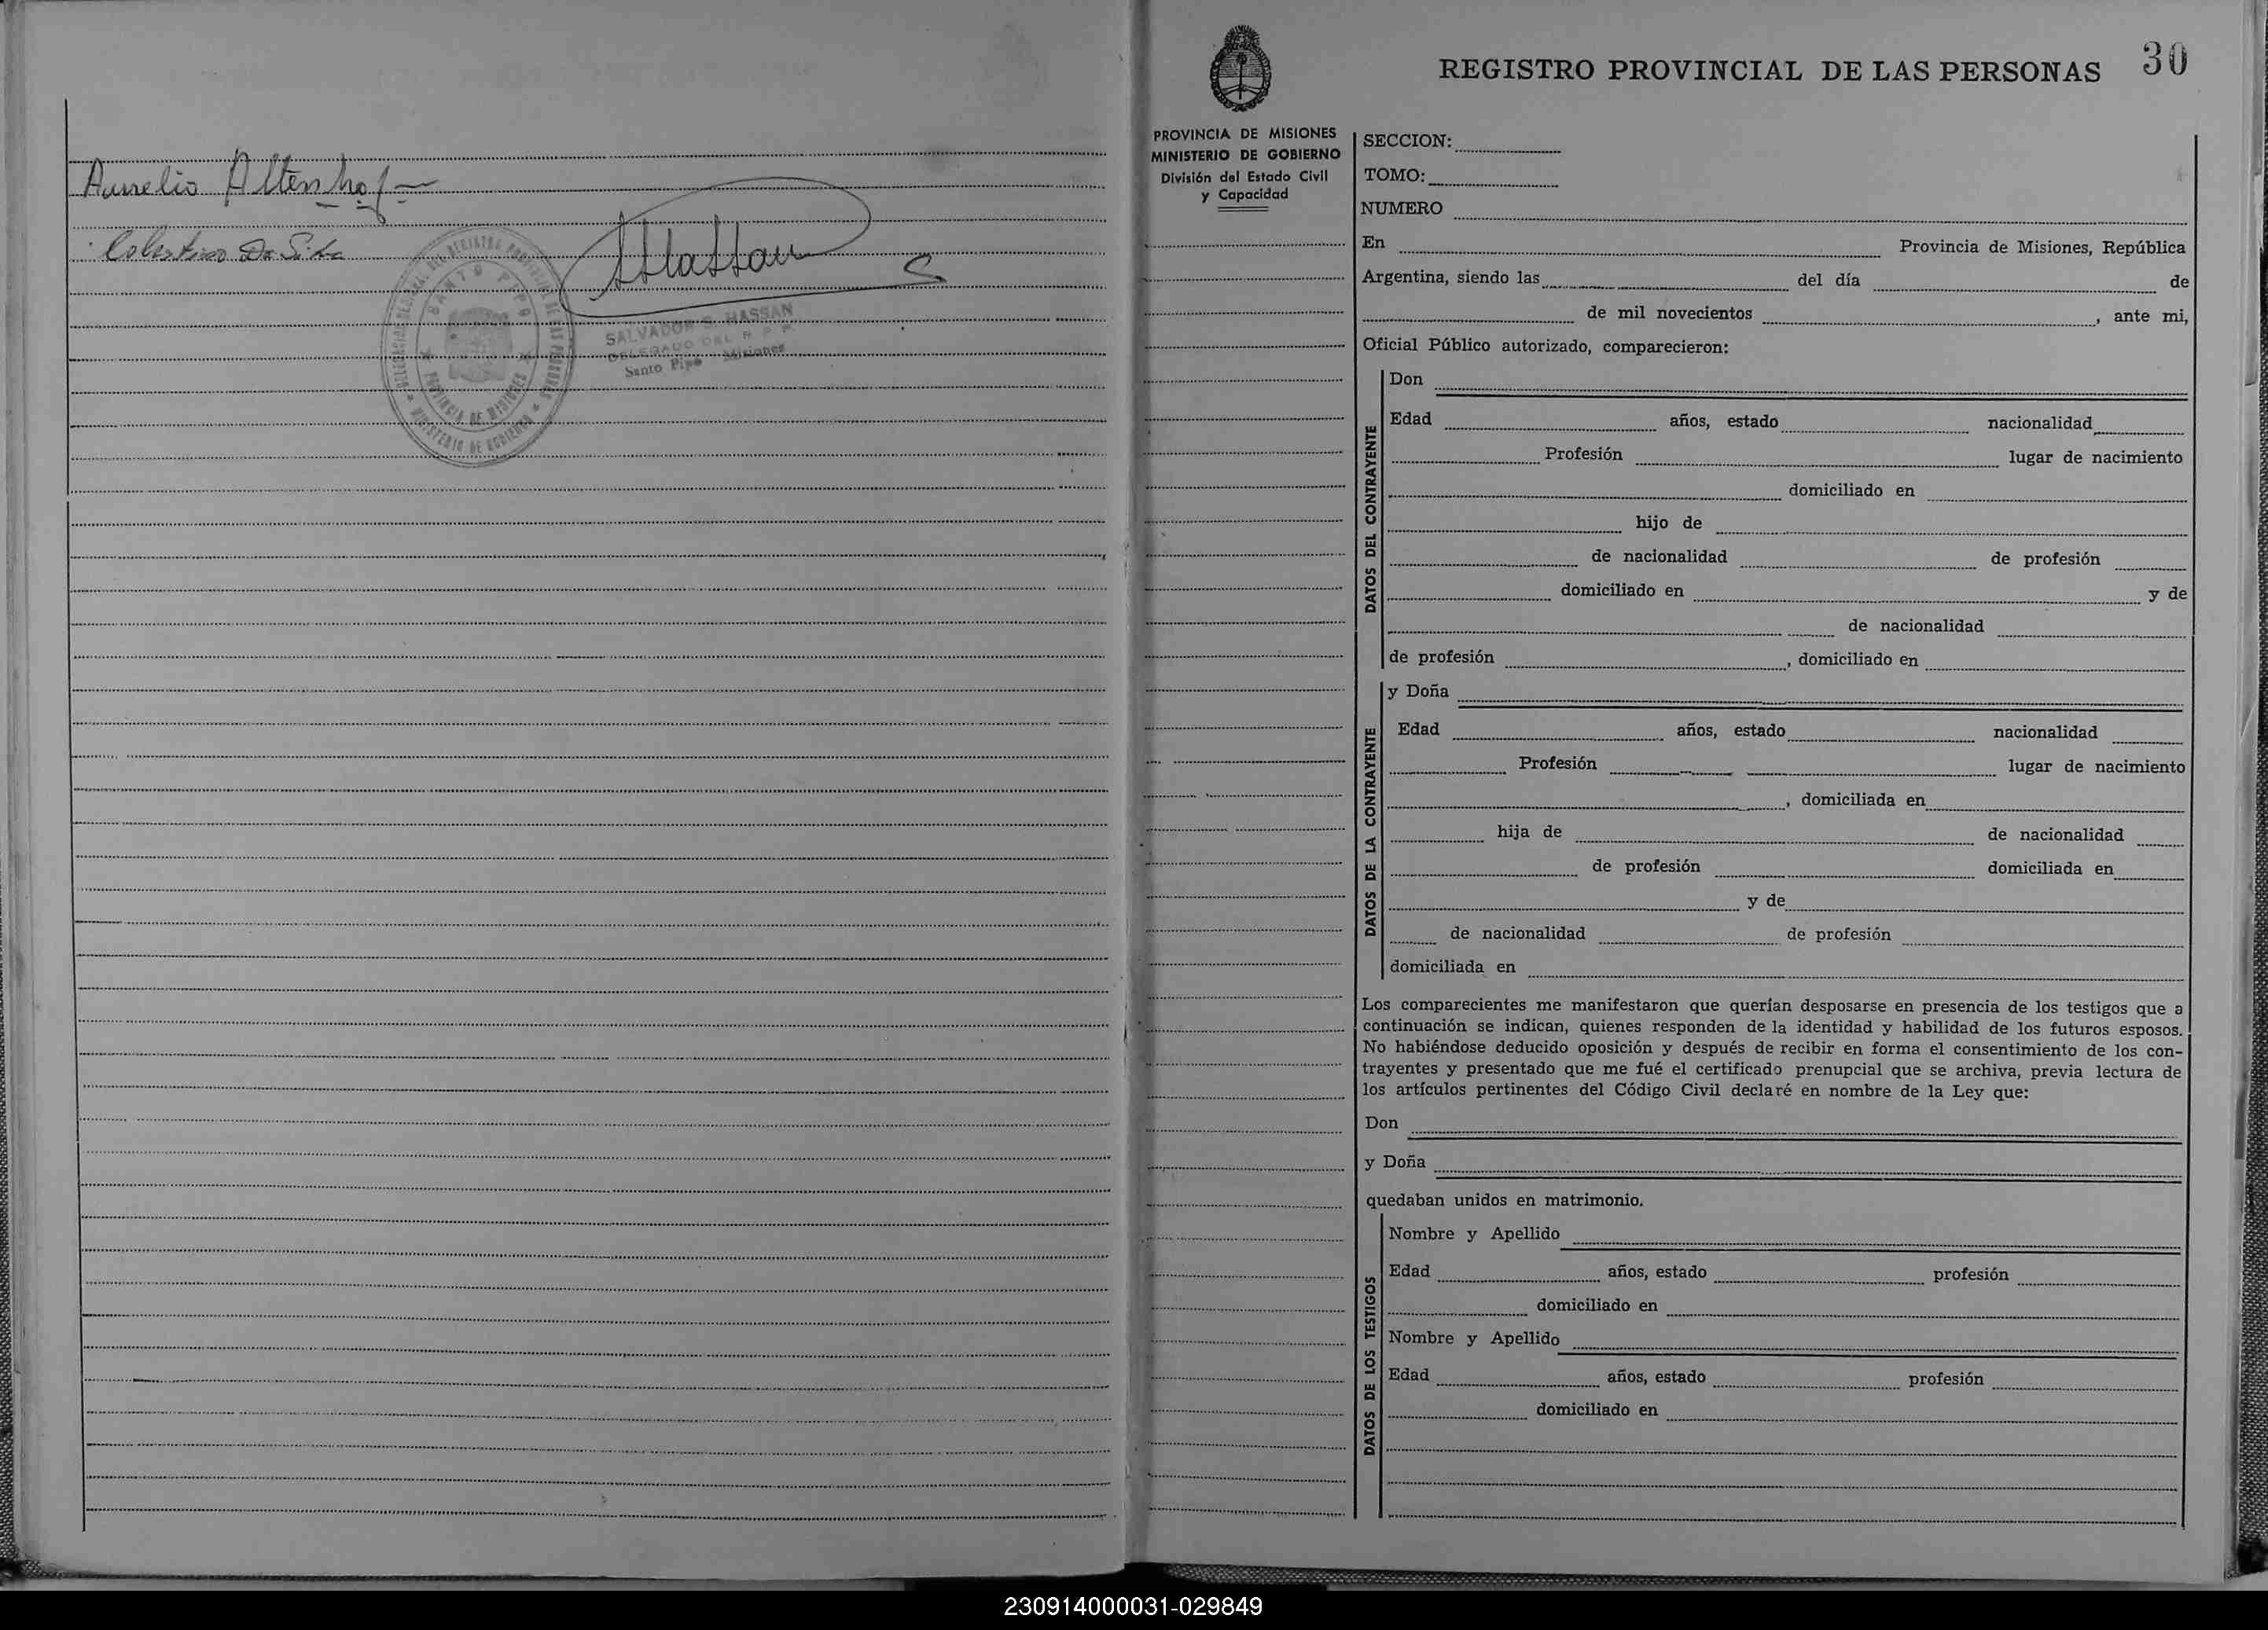 Aurelio Altenhof
Celestino Da Silva
DELEGACION REGIONAL DEL REGISTRO PROVINCIAL DE LAS PERSONAS
SANTO PIPO
PROVINCIA DE MISIONES
MINISTERIO DE GOBIERNO
SALVADOR S. HASSAN
DELEGADO DEL R P P
Santo Pipó Misiones
REGISTRO PROVINCIAL DE LAS PERSONAS 30
PROVINCIA DE MISIONES
MINISTERIO DE GOBIERNO
División del Estado Civil
y Capacidad
SECCION:
TOMO:
NUMERO
En Provincia de Misiones, República
Argentina, siendo las del día de
de mil novecientos , ante mi,
Oficial Público autorizado, comparecieron:
DATOS DEL CONTRAYENTE
Don
Edad años, estado nacionalidad
Profesión lugar de nacimiento
domiciliado en
hijo de
de nacionalidad de profesión
domiciliado en y de
de nacionalidad
de profesión , domiciliado en
DATOS DE LA CONTRAYENTE
y Doña
Edad años, estado nacionalidad
Profesión lugar de nacimiento
, domiciliada en
hija de de nacionalidad
de profesión domiciliada en
y de
de nacionalidad de profesión
domiciliada en
Los comparecientes me manifestaron que querían desposarse en presencia de los testigos que a
continuación se indican, quienes responden de la identidad y habilidad de los futuros esposos.
No habiéndose deducido oposición y después de recibir en forma el consentimiento de los con-
trayentes y presentado que me fué el certificado prenupcial que se archiva, previa lectura de
los artículos pertinentes del Código Civil declaré en nombre de la Ley que:
Don
y Doña
quedaban unidos en matrimonio.
DATOS DE LOS TESTIGOS
Nombre y Apellido
Edad años, estado profesión
domiciliado en
Nombre y Apellido
Edad años, estado profesión
domiciliado en
230914000031-029849